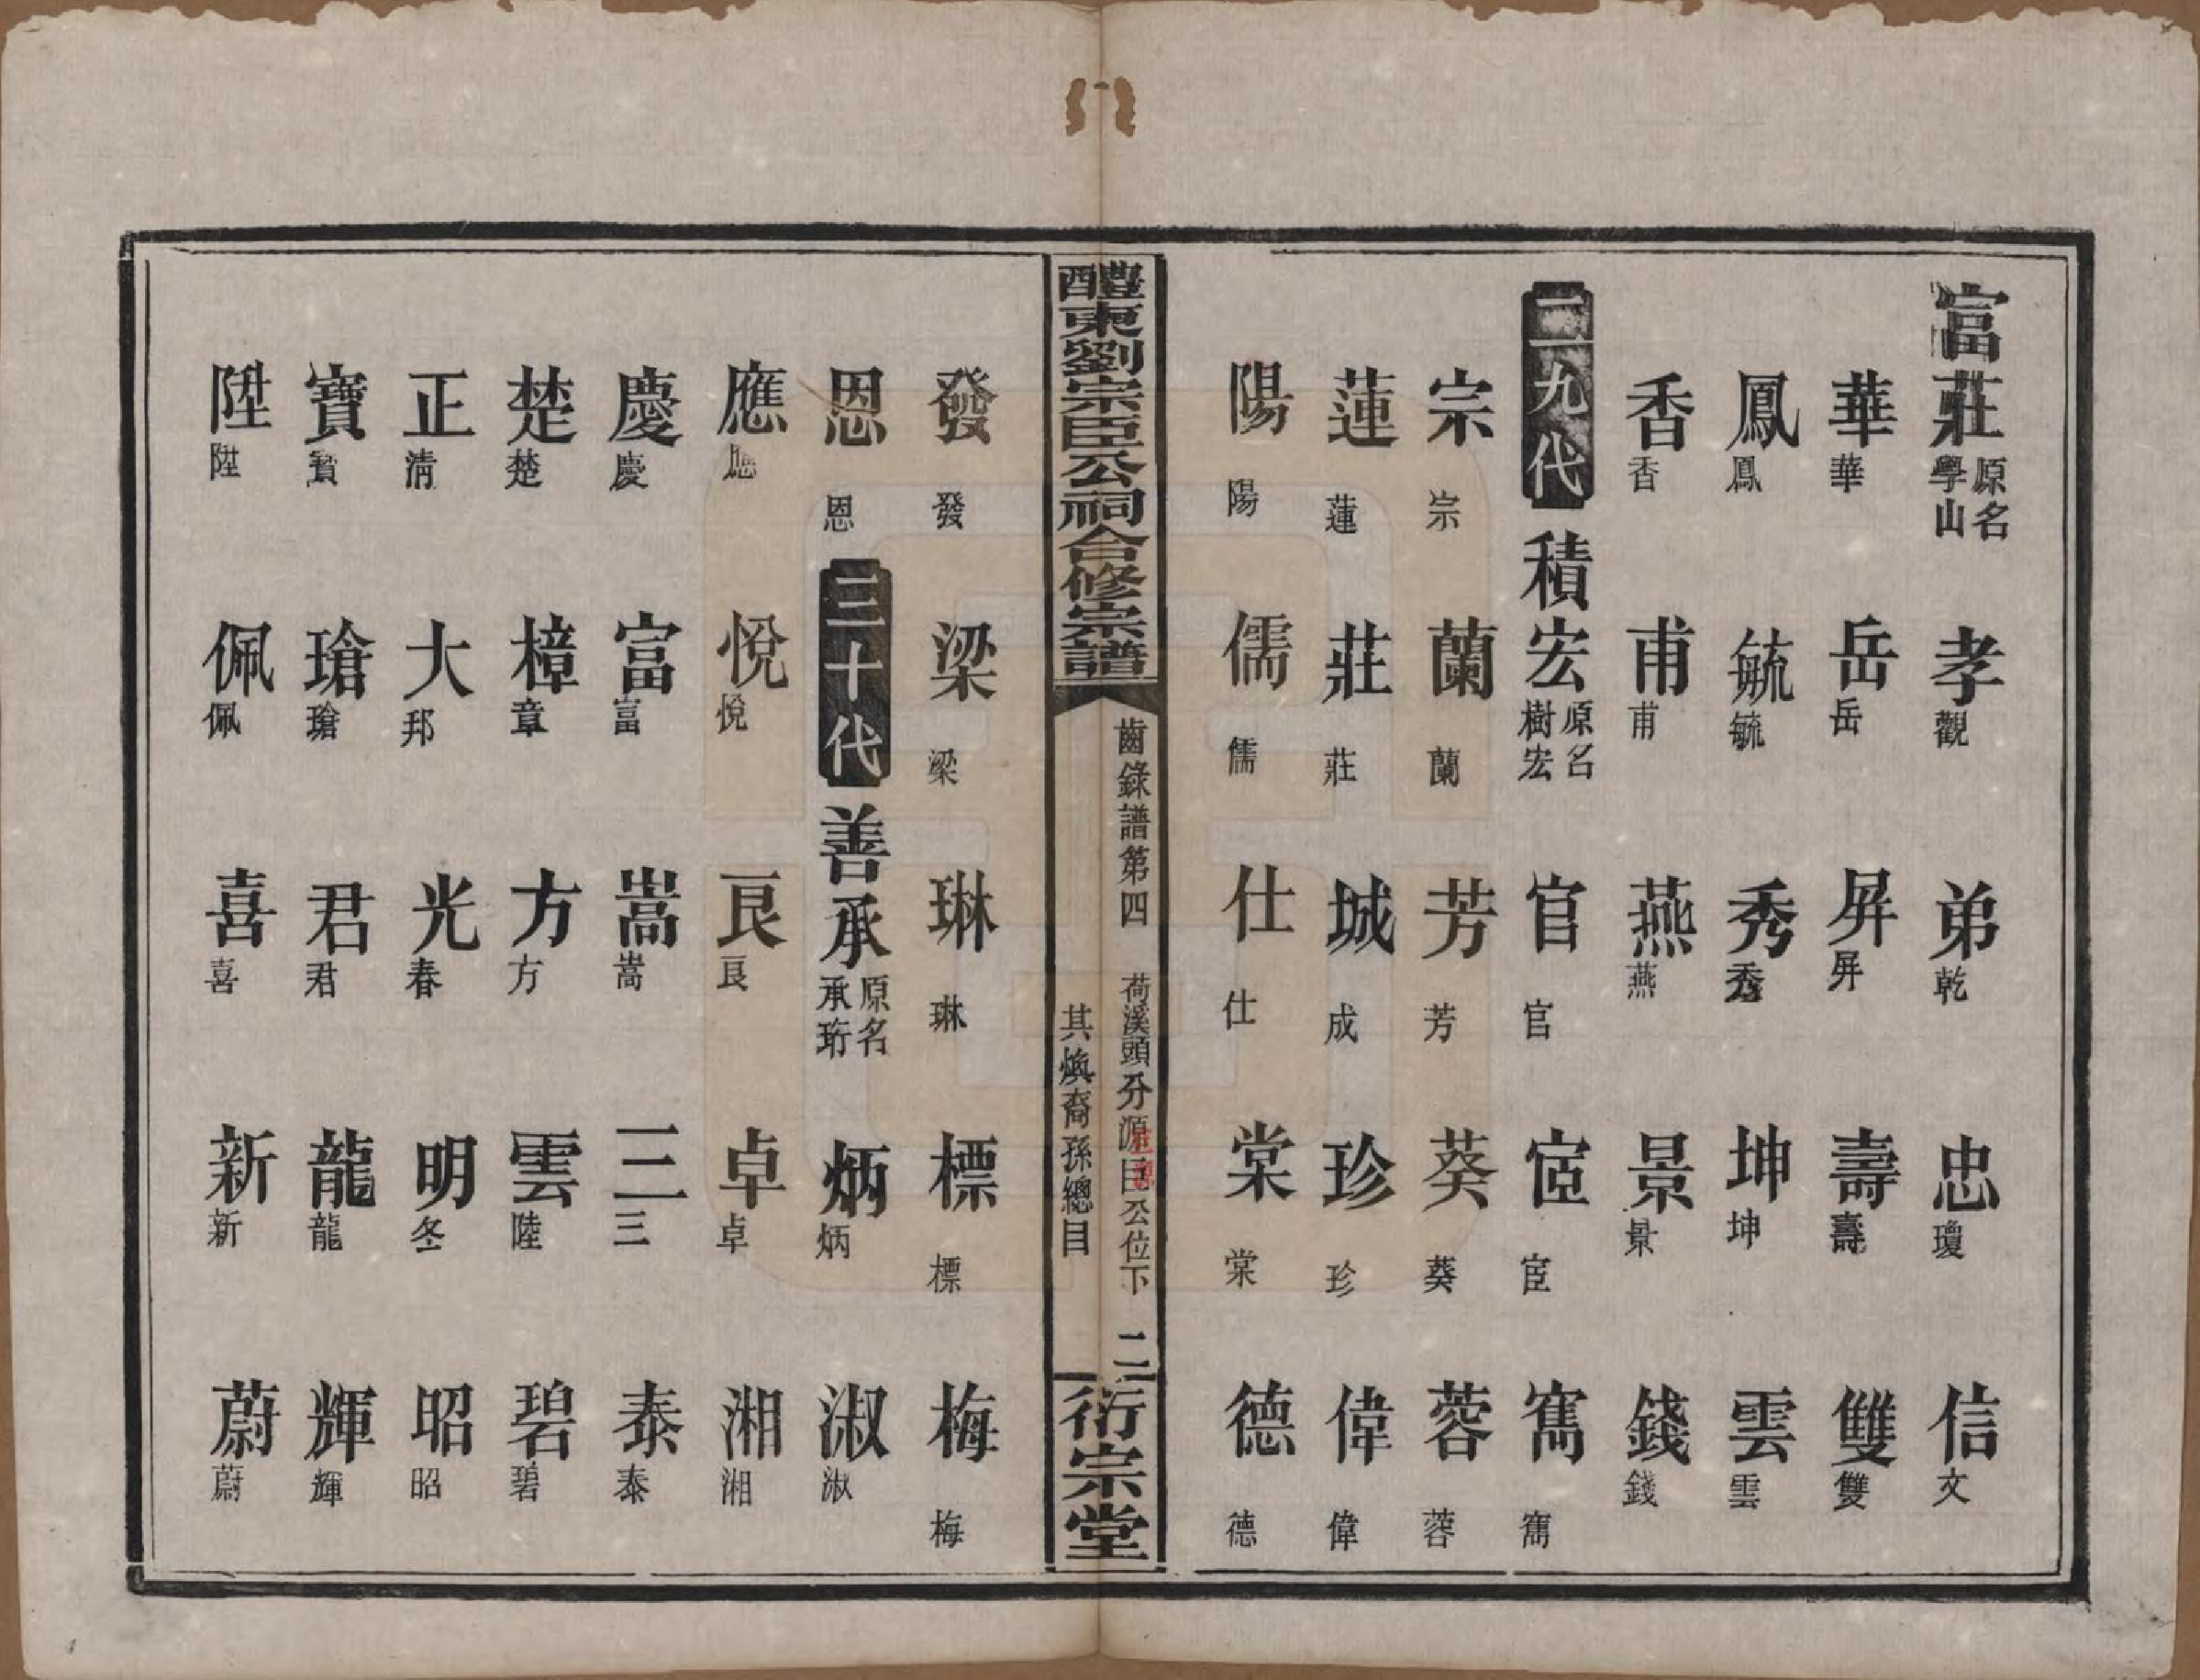 富莊 原名學山 孝 觀 弟 乾 忠 瓊 信 文
華 華 岳 岳 屏 屏 壽 壽 雙 雙
鳳 鳳 毓 毓 秀 秀 坤 坤 雲 雲
香 香 甫 甫 燕 燕 景 景 錢 錢
二九代 積宏 原名樹宏 官 官 宧 宧 寯 寯
宗 宗 蘭 蘭 芳 芳 葵 葵 蓉 蓉
蓮 蓮 莊 莊 城 成 珍 珍 偉 偉
陽 陽 儒 儒 仕 仕 棠 棠 德 德
醴東劉宗臣公祠合修宗譜
齒錄譜第四 荷溪頭分源 公位下
其煥裔孫總目
二
衍宗堂
發 發 梁 梁 琳 琳 標 標 梅 梅
恩 恩 三十代 善承 原名承珩 炳 炳 淑 淑
應 應 悅 悅 良 良 卓 卓 湘 湘
慶 慶 富 富 嵩 嵩 三 三 泰 泰
楚 楚 樟 章 方 方 雲 陸 碧 碧
正 清 大 邦 光 春 明 冬 昭 昭
寶 寶 瑲 瑲 君 君 龍 龍 輝 輝
陞 陞 佩 佩 喜 喜 新 新 蔚 蔚